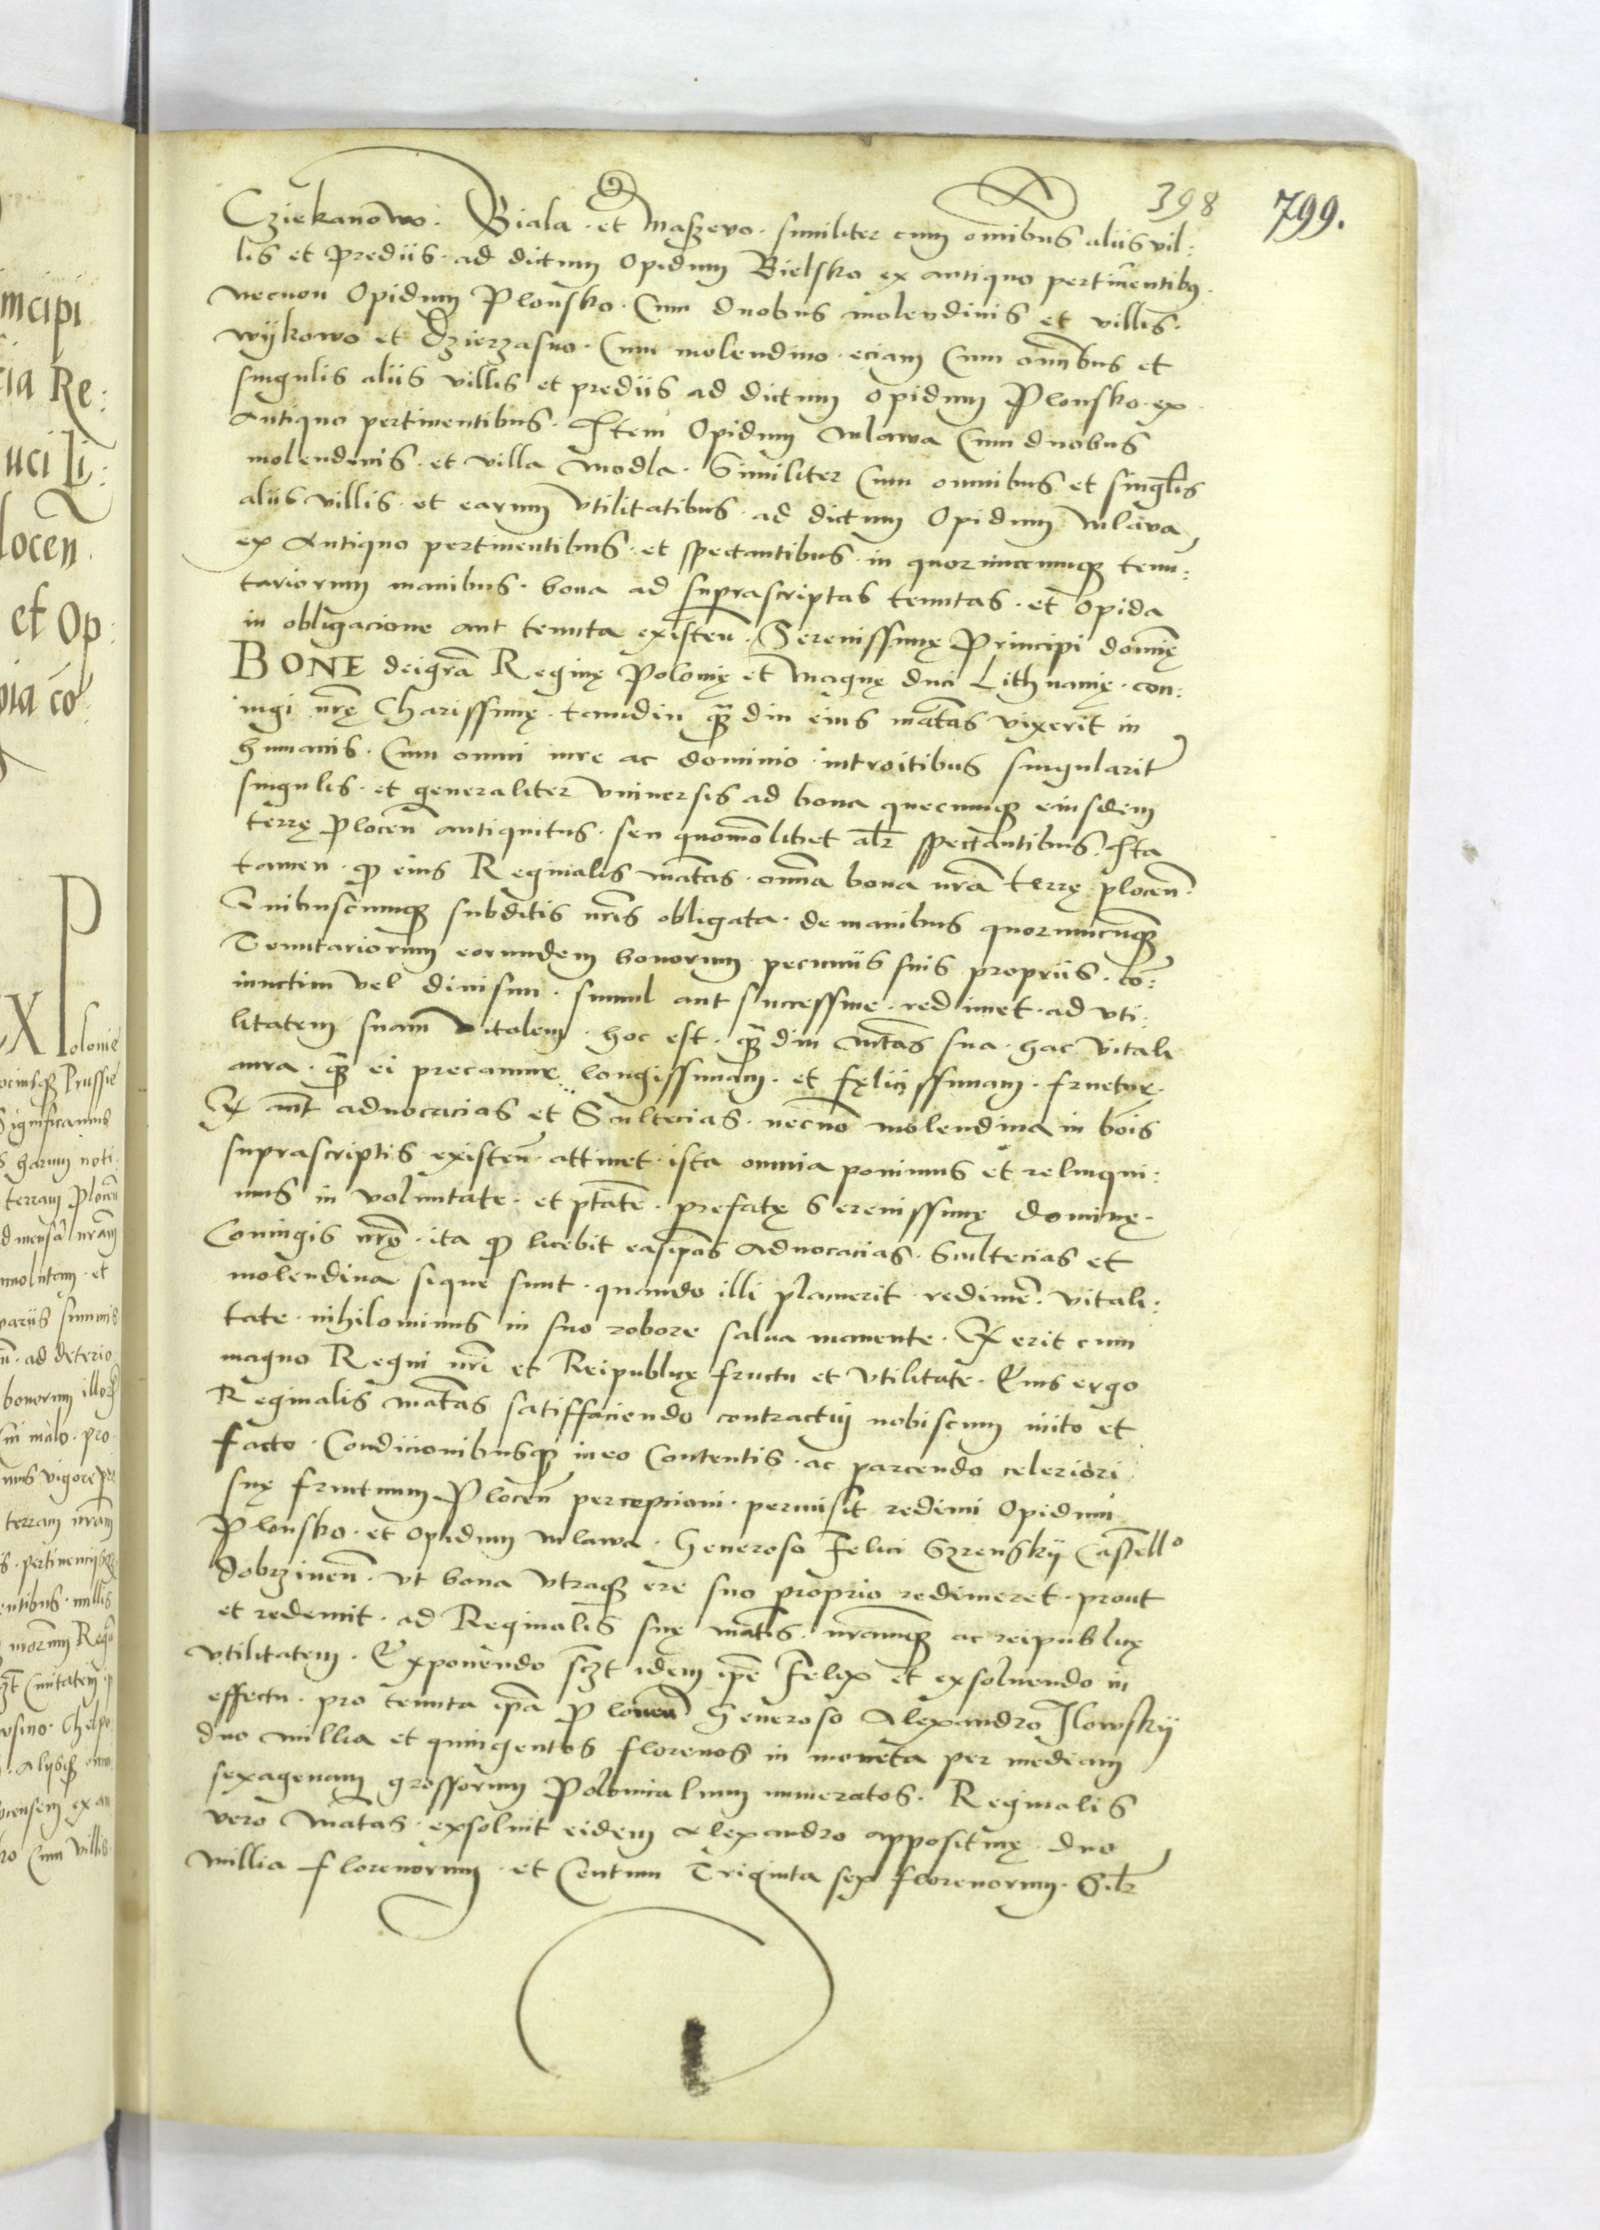 398 799.
Cziekanowo. Biala. et Maszevo. similiter cum omībus aliis vil:
lis et Prediis. ad dictum Opidum Bielsko ex antiquo pertinentibus.
necnon Opidum Plonsko. Cum duobus molendinis et villis.
Wykowo et Dzierzasno. Cum molendino. eciam Cum omībus et
singulis aliis villis et prediis ad dictum opidum Plonsko. ex
Antiquo pertinentibus. Item Opidum Mlawa Cum duobus
molendinis. et villa Modla. Similiter Cum omnibus et singlis
aliis villis. et earum Vtilitatibus. ad dictum Opidum Mlava
ex Antiquo pertinentibus. et spectantibus. in quorumcumqȝ tenu:
tariorum manibus. bona ad suprascriptas tenutas. et Opida
in obligacione aut tenuta existeñ. Serenissimę Principi domię
BONE dei grã Reginę Polonię et Magnę duci Lithuanię. con:
iugi nrę Charissimę. tamdiu quãdiu eius mãtas vixerit in
humanis. Cum omni iure ac dominio. introitibus singularit
singulis. et generaliter vniuersis ad bona quecumqȝ eiusdem
terrę Ploceñ antiquitus. seu quomõlibet alr̃ spectantibus. Ita
tamen. qȝ eius Reginalis mãtas. omīa bona nrã terrę ploceñ.
Quibuscumqȝ subditis nris obligata. de manibus quorumcumqȝ
Tenutariorum eorundem bonorum pecuniis suis propriis. cõ:
iunctim vel diuisim. simul aut successiue. redimet. ad vti:
litatem suam Vitalem. hoc est. quãdiu Mtas sua. hac Vitali
aura. quã ei precamur longissimam. et fęlicissimam. fruetur.
Qȝ aut̃ aduocacias et Scultecias. necnõ molendina in bois
suprascriptis existeñ. attinet. ista omnia ponimus et relinqui:
mus in voluntate. et ptãte. prefatę Serenissimę dominę.
Coniugis nrę. ita qȝ licebit easipãs Aduocacias. Scultecias et
molendina sique sunt. quando illi placuerit redimẽ. vitali:
tate. nihilominus in suo robore salua manente. Qȝ erit cum
magno Regni nri et Reipublicę fructu et Vtilitate. Eius ergo
Reginalis mãtas satisfaciendo contractui nobiscum inito et
facto. Condicionibusqȝ in eo Contentis. ac parcendo celeriori
suę fructuum Ploceñ percepcioni. permisit redimi Opidum
Plonsko. et Opidum Mlawa. Generoso Felici Szrenskij Castello
dobrzineñ. Vt bona vtraqȝ ere suo proprio redimeret. prout
et redemit. ad Reginalis suę mãtis. nrãmqȝ ac reipublicę
Vtilitatem. Exponendo scȝt idem ipẽ Felix et exsoluendo in
effectu. pro tenuta ipã Ploneñ Generoso Alexandro Ilowskij
duo millia et quingentos florenos in moneta per mediam
sexagenam grossorum Polonicalium numeratos. Reginalis
vero Mãtas. exsoluit eidem Alexandro appositiuę duo
millia florenorum. et Centum Triginta sex florenorum. Silr̃